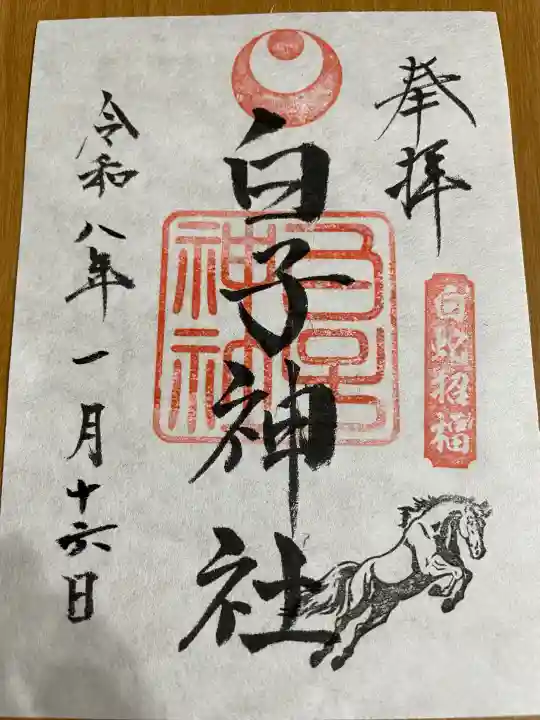 奉拝
白蛇招福
白子神社
白子神社
令和八年一月十六日